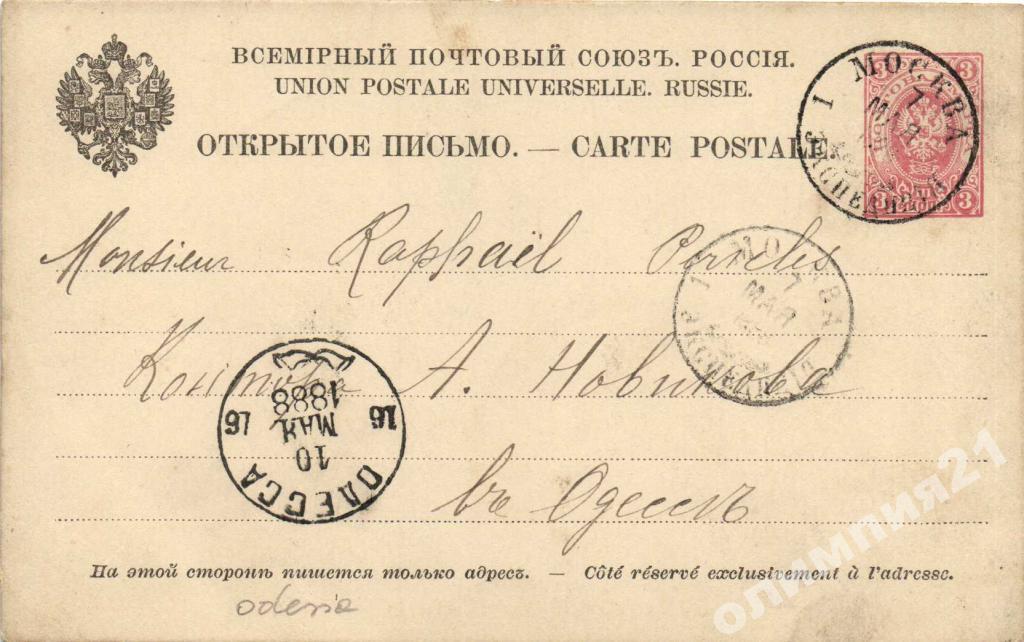 ВСЕМІРНЫЙ ПОЧТОВЫЙ СОЮЗЪ. РОССІЯ.
UNION POSTALE UNIVERSELLE. RUSSIE.
ОТКРЫТОЕ ПИСЬМО. — CARTE POSTALE.
3 3
3 3
МОСКВА
7
МАР
1
ЭКСПЕДИЦІЯ
Monsieur Raphaël
МОСКВА
7
МАР
1
ЭКСПЕДИЦІЯ
Контора А. Новикова
1888
16 16
МАЯ
10
ОДЕССА
въ Одессѣ
На этой сторонѣ пишется только адресъ. — Côté réservé exclusivement à l'adresse.
odessa
олимпия21